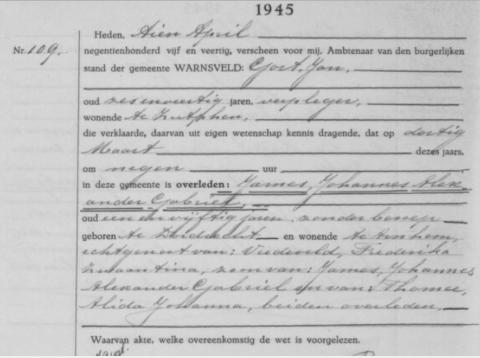 1945
Heden, tien April
Nr. 109. negentienhonderd vijf en veertig, verscheen voor mij, Ambtenaar van den burgerlijken
stand der gemeente WARNSVELD: Gort, Jan,
oud zesenveertig jaren, verpleger,
wonende te Zutphen,
die verklaarde, daarvan uit eigen wetenschap kennis dragende, dat op dertig
Maart dezes jaars,
om negen uur
in deze gemeente is overleden: James, Johannes Alex-
ander Gabriël,
oud een en vijftig jaren, zonder beroep
geboren te Dordrecht en wonende te Arnhem,
echtgenoot van: Frederika
zoon van: James, Johannes
Alexander Gabriel en van: Thomee,
Alida Johanna, beiden overleden.
Waarvan akte, welke overeenkomstig de wet is voorgelezen.